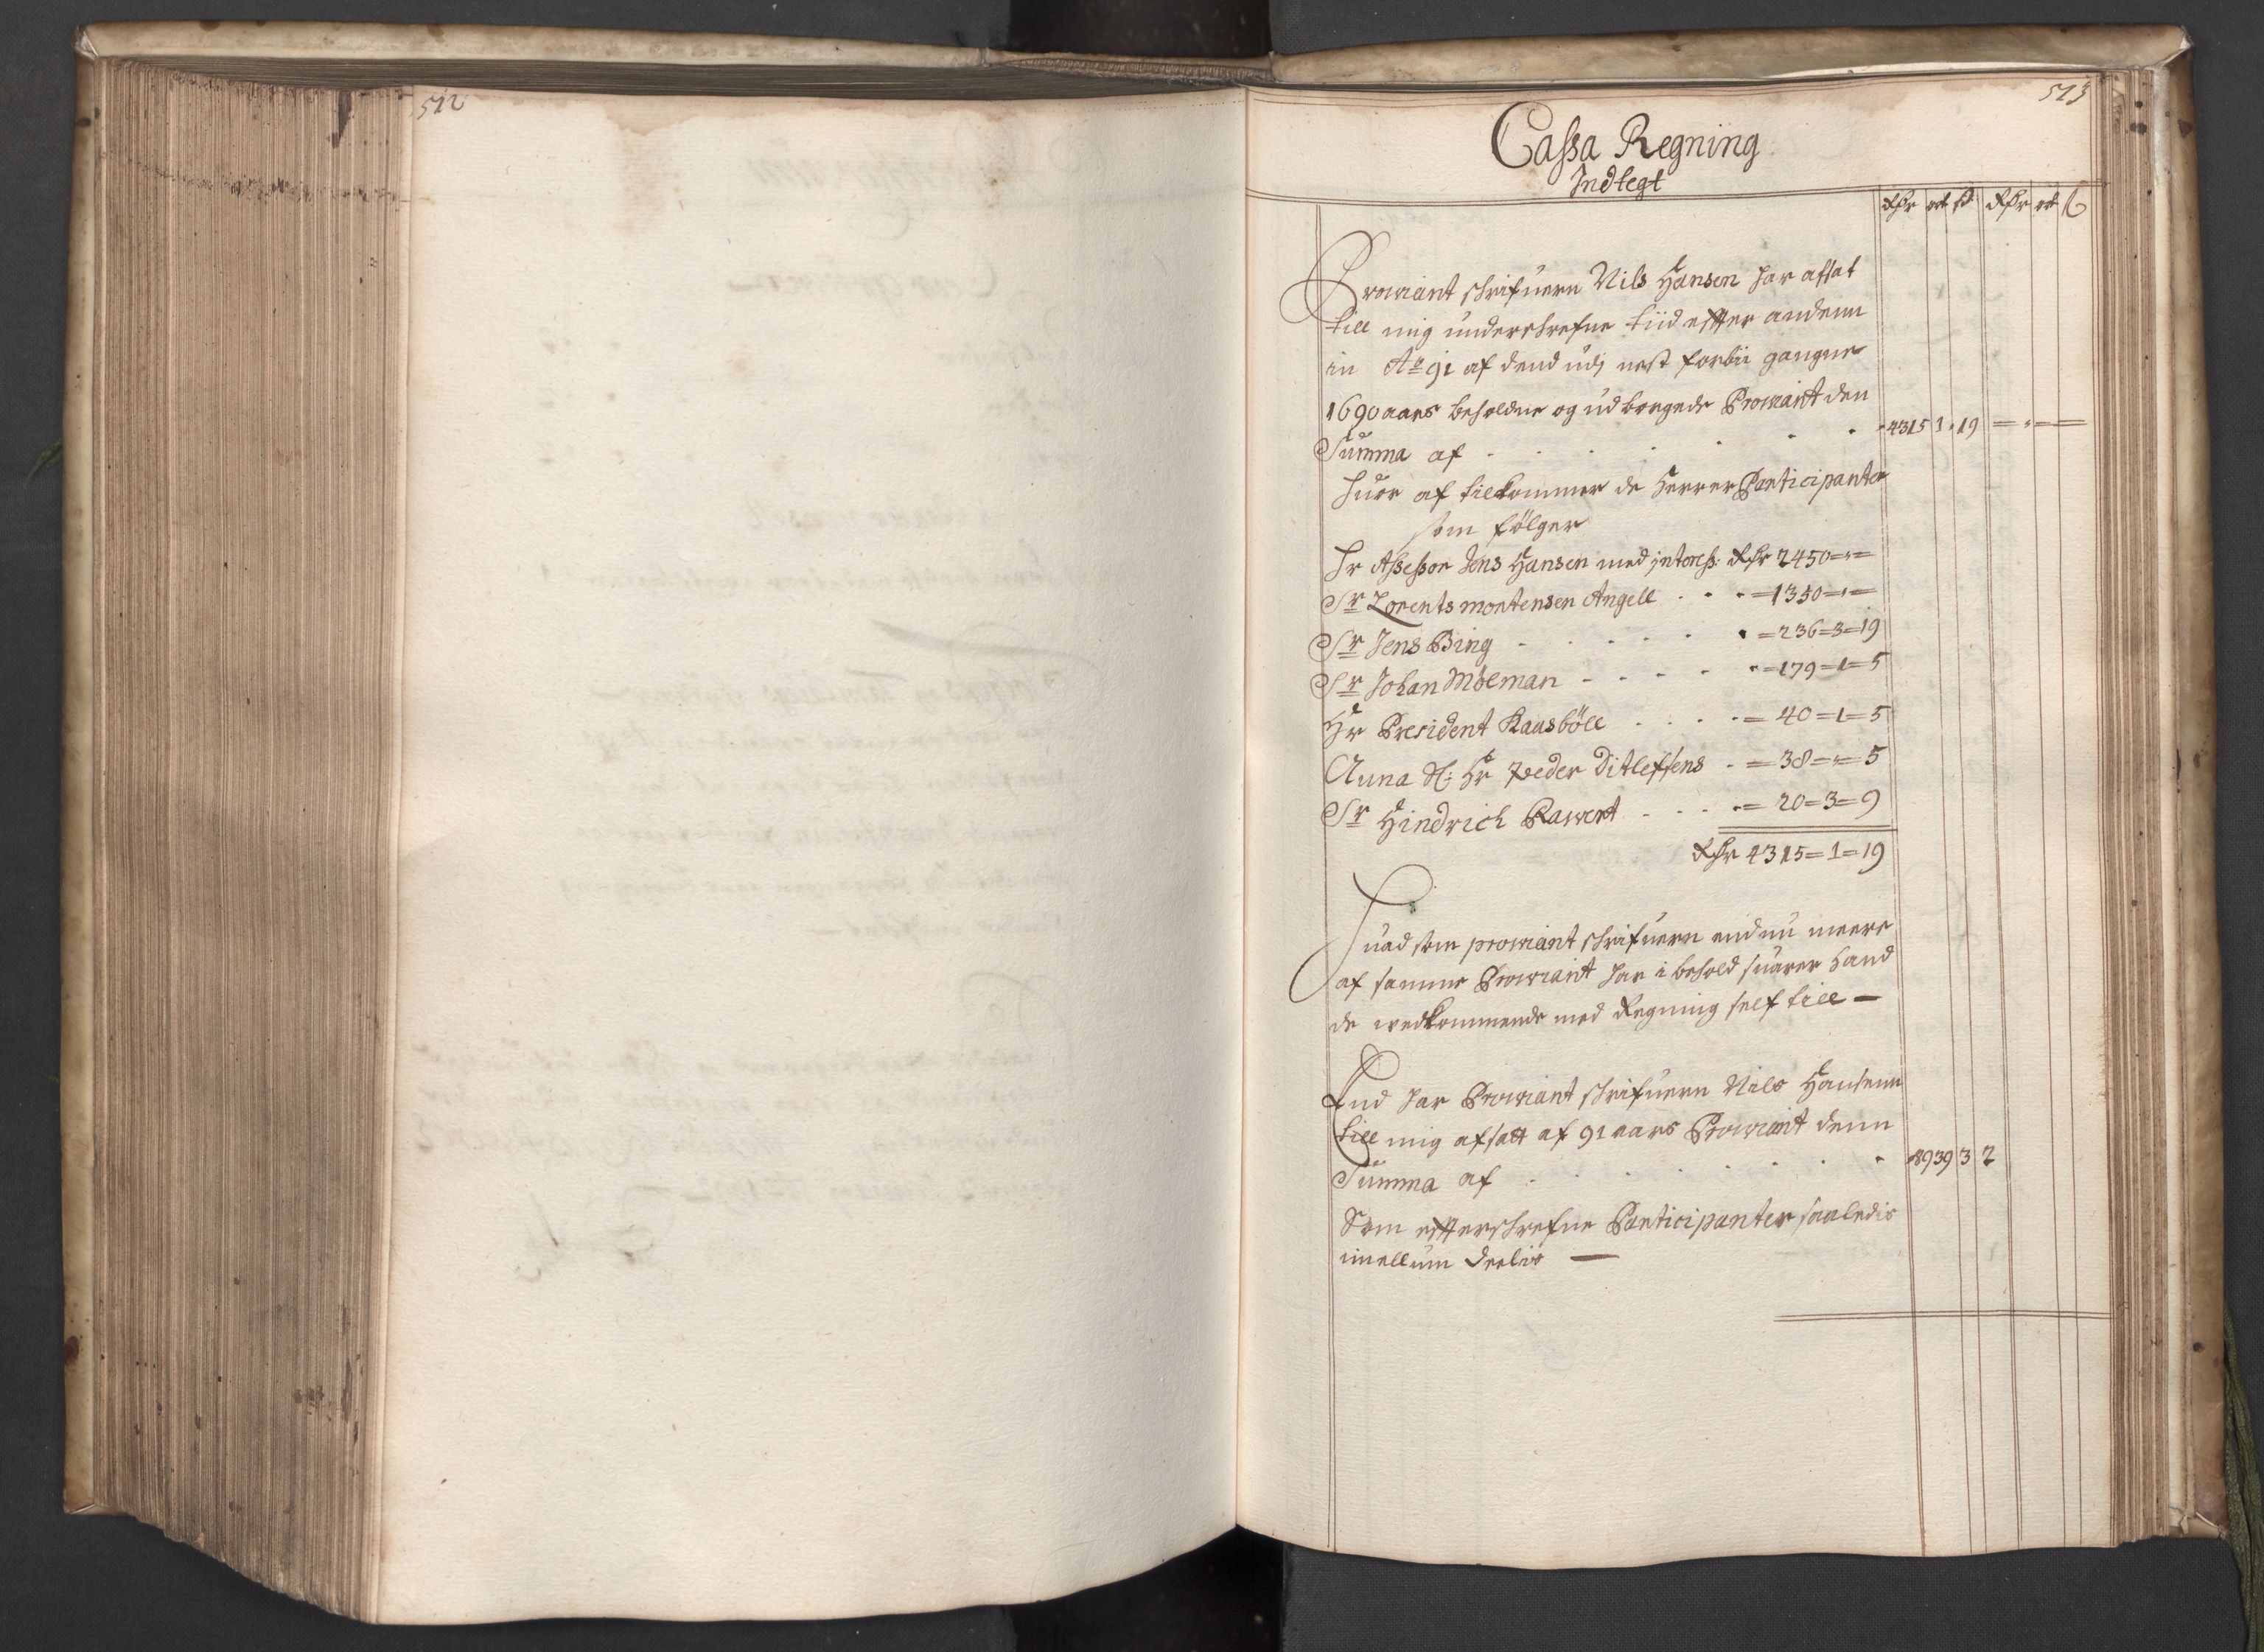 512
513
Cassa Regning
Indtegt
Rdr ort ß Rdr ort ß
Prowiant schrifuern Nils Hansen har afsat
till mig underschrefne tiid effter andenn
in Ao 91 af dend udj nest forbii gangne
1690 aars beholdne og udborgede Prowiant den
Summa af . . . . . . 4315 1 19
huor af tilkommer de Herrer Participanter
som fölger
Hr Assessor Jens Hansen med interess: Rdr 2450="=
Sr Lorents mortensen Angell . . . =1350="=
Sr Jens Bing . . . . . =236=3=19
Sr Johan Möeman . . . . =179=1=5
Hr President Kaasböll . . . . = 40=1=5
Anna Sl: Hr Peder Ditlefsens . = 38="=5
Sr Hindrich Rawert . . . . = 20=3=9
Rdr 4315=1=19
Huad som prowiant schrifuern end nu meere
af samme Prowiant har i behold suarer hand
de wedkommende med Regning self till
End har Prowiant schrifuern Nils Hansenn
till mig afsatt af 91 aars Prowiant denn
Summa af . . . . . . 8939 3 2
Som effterschrefne Participanter saaledis
imellum deelis